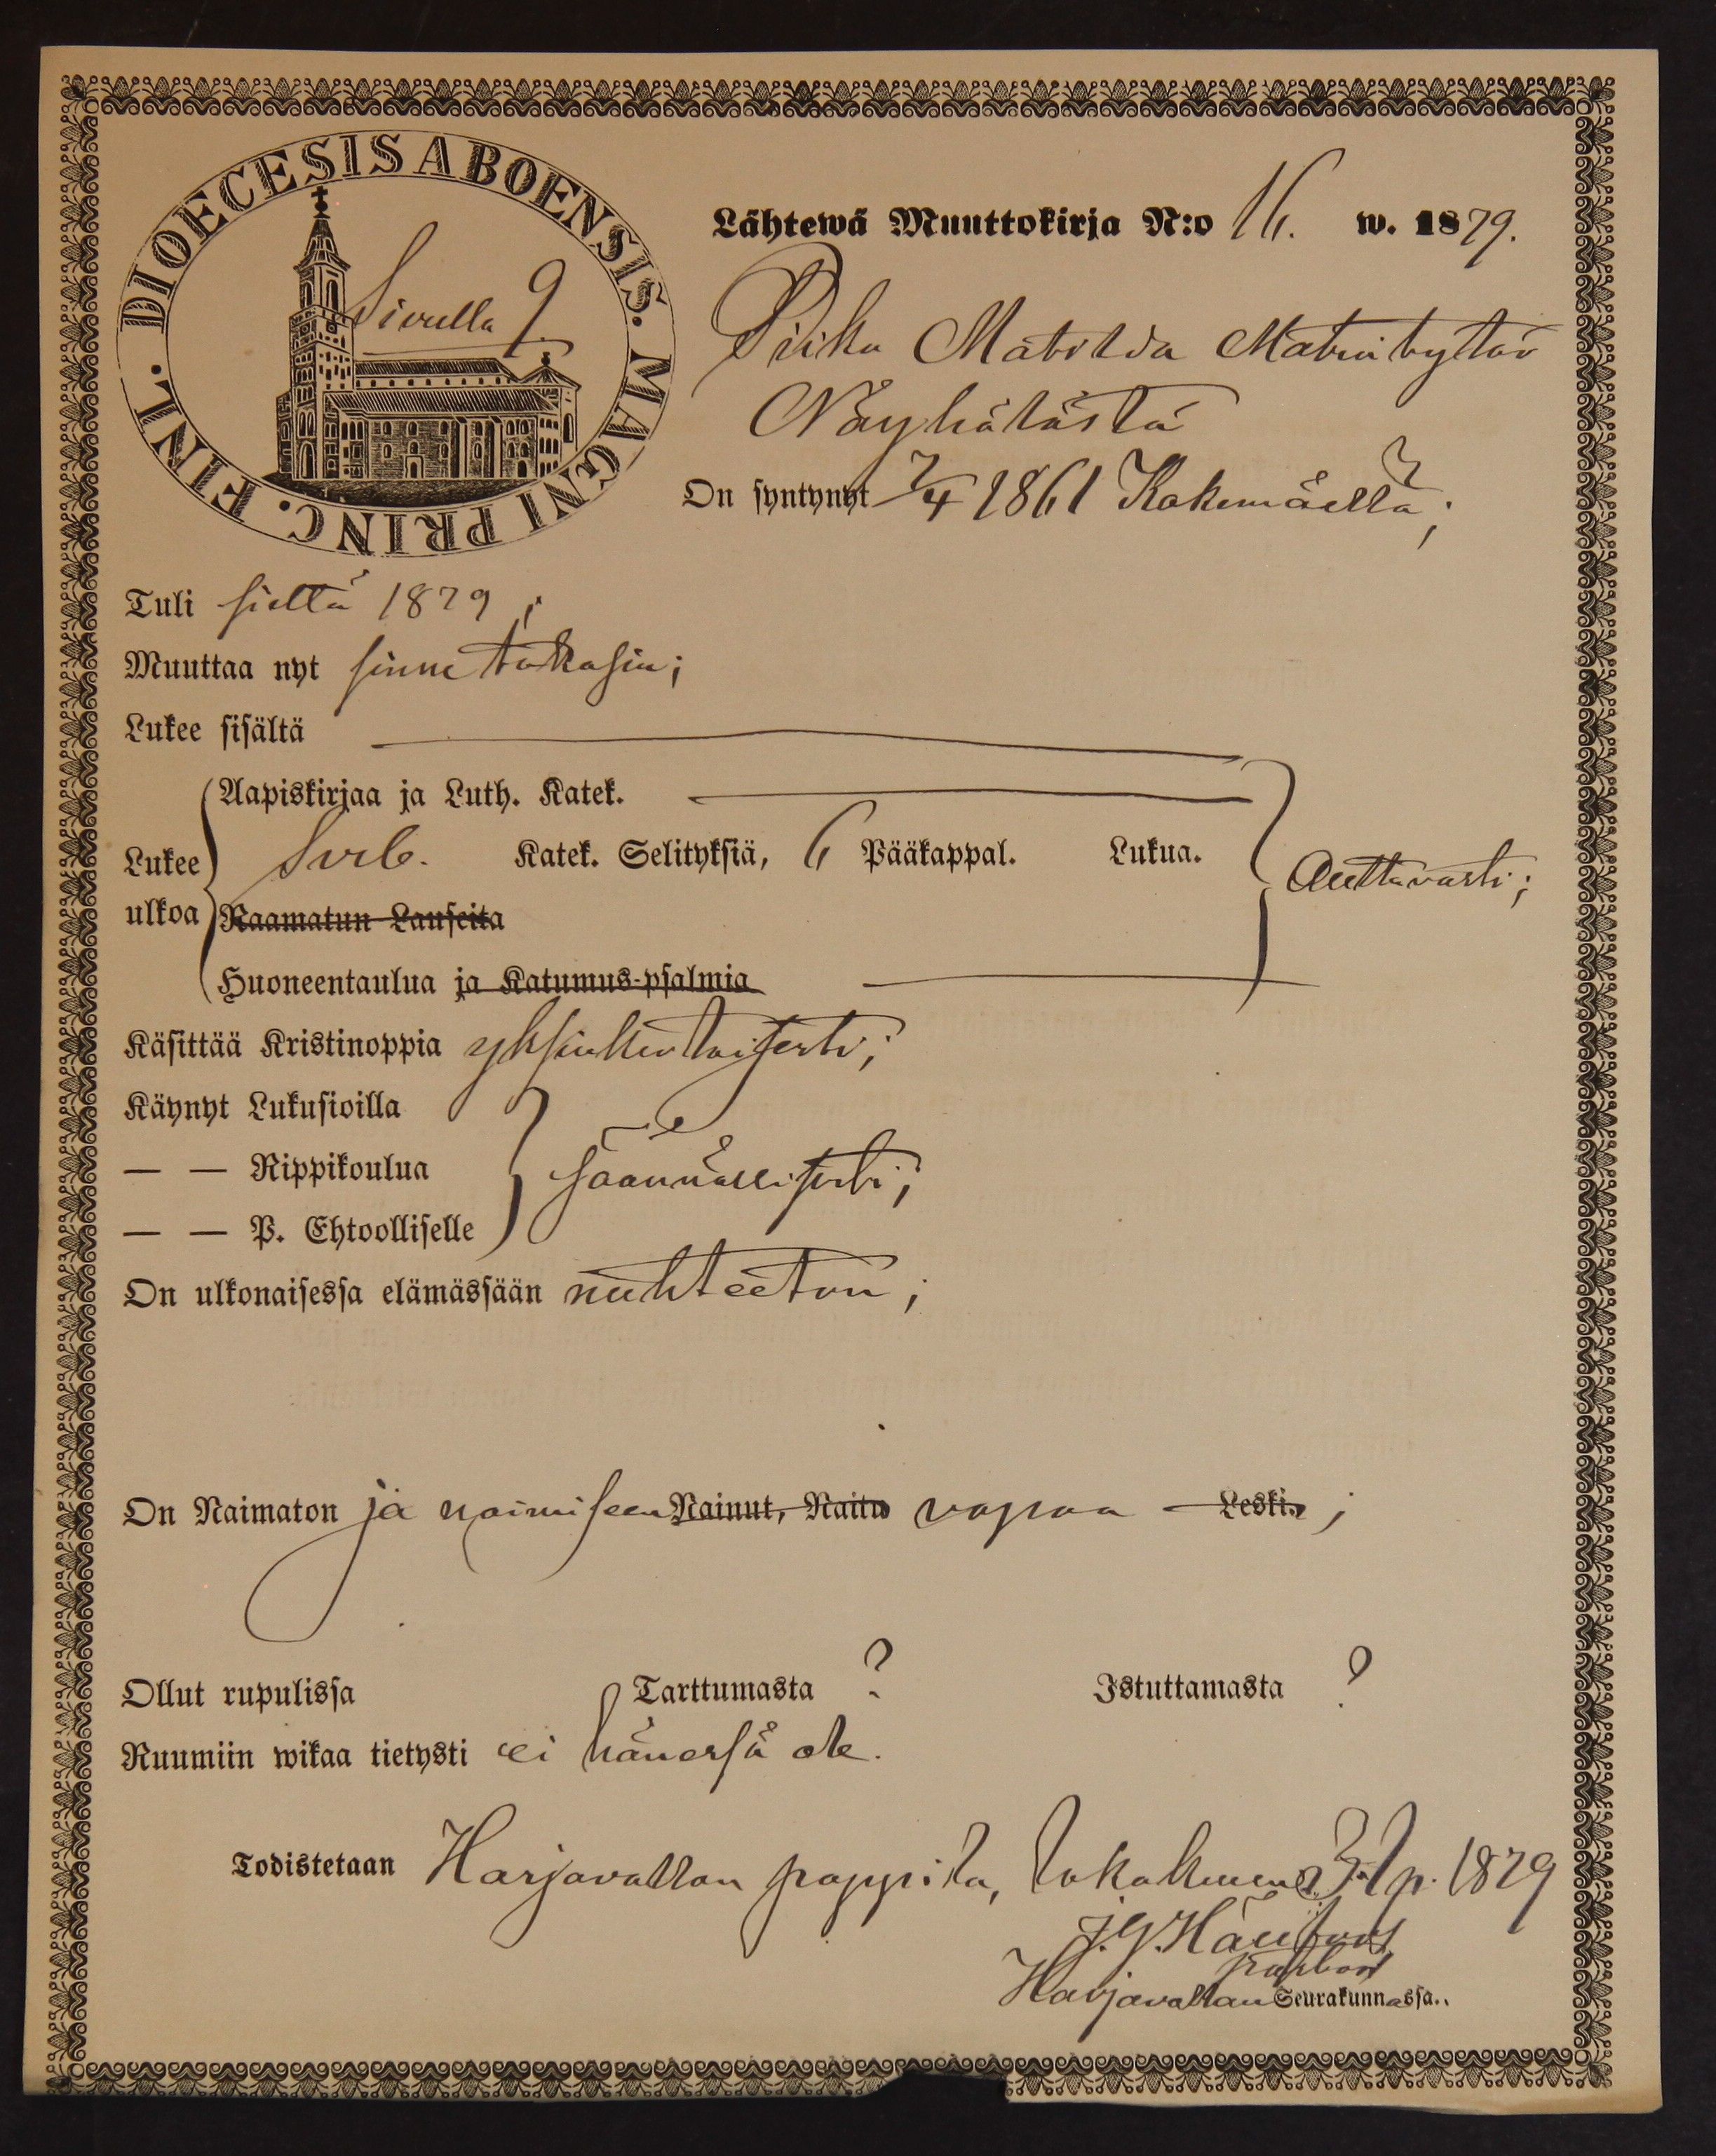 DIOECESIS ABOENSIS. MAGNI PRINC. FINL.
Sivulla 9.
Lähtewä Muuttokirja N:o 16. w. 1879.
Piika Matilda Matintytär
Näyhälästä
On syntynyt 7/4 1861 Kokemäellä;
Tuli sieltä 1879;
Muuttaa nyt sinne takasin;
Lukee sisältä
Aapiskirjaa ja Luth. Katek.
Lukee ulkoa Sveb. Katek. Selityksiä, 6 Pääkappal. Lukua. Auttavasti;
Raamatun Lauseita
Huoneentaulua ja Katumus-psalmia
Käsittää Kristinoppia yksinkertaisesti;
Käynyt Lukusioilla
— — Rippikoulua säännöllisesti;
— — P. Ehtoolliselle
On ulkonaisessa elämässään nuhteeton;
On Naimaton ja naimiseen Nainut, Naitu vapaa Leski. ;
Ollut rupulissa Tarttumasta ? Istuttamasta ?
Ruumiin wikaa tietysti ei hänessä ole.
Todistetaan Harjavallan pappila, lokakuun 3 p. 1879
J. G.
pastori
Harjavallan Seurakunnassa.